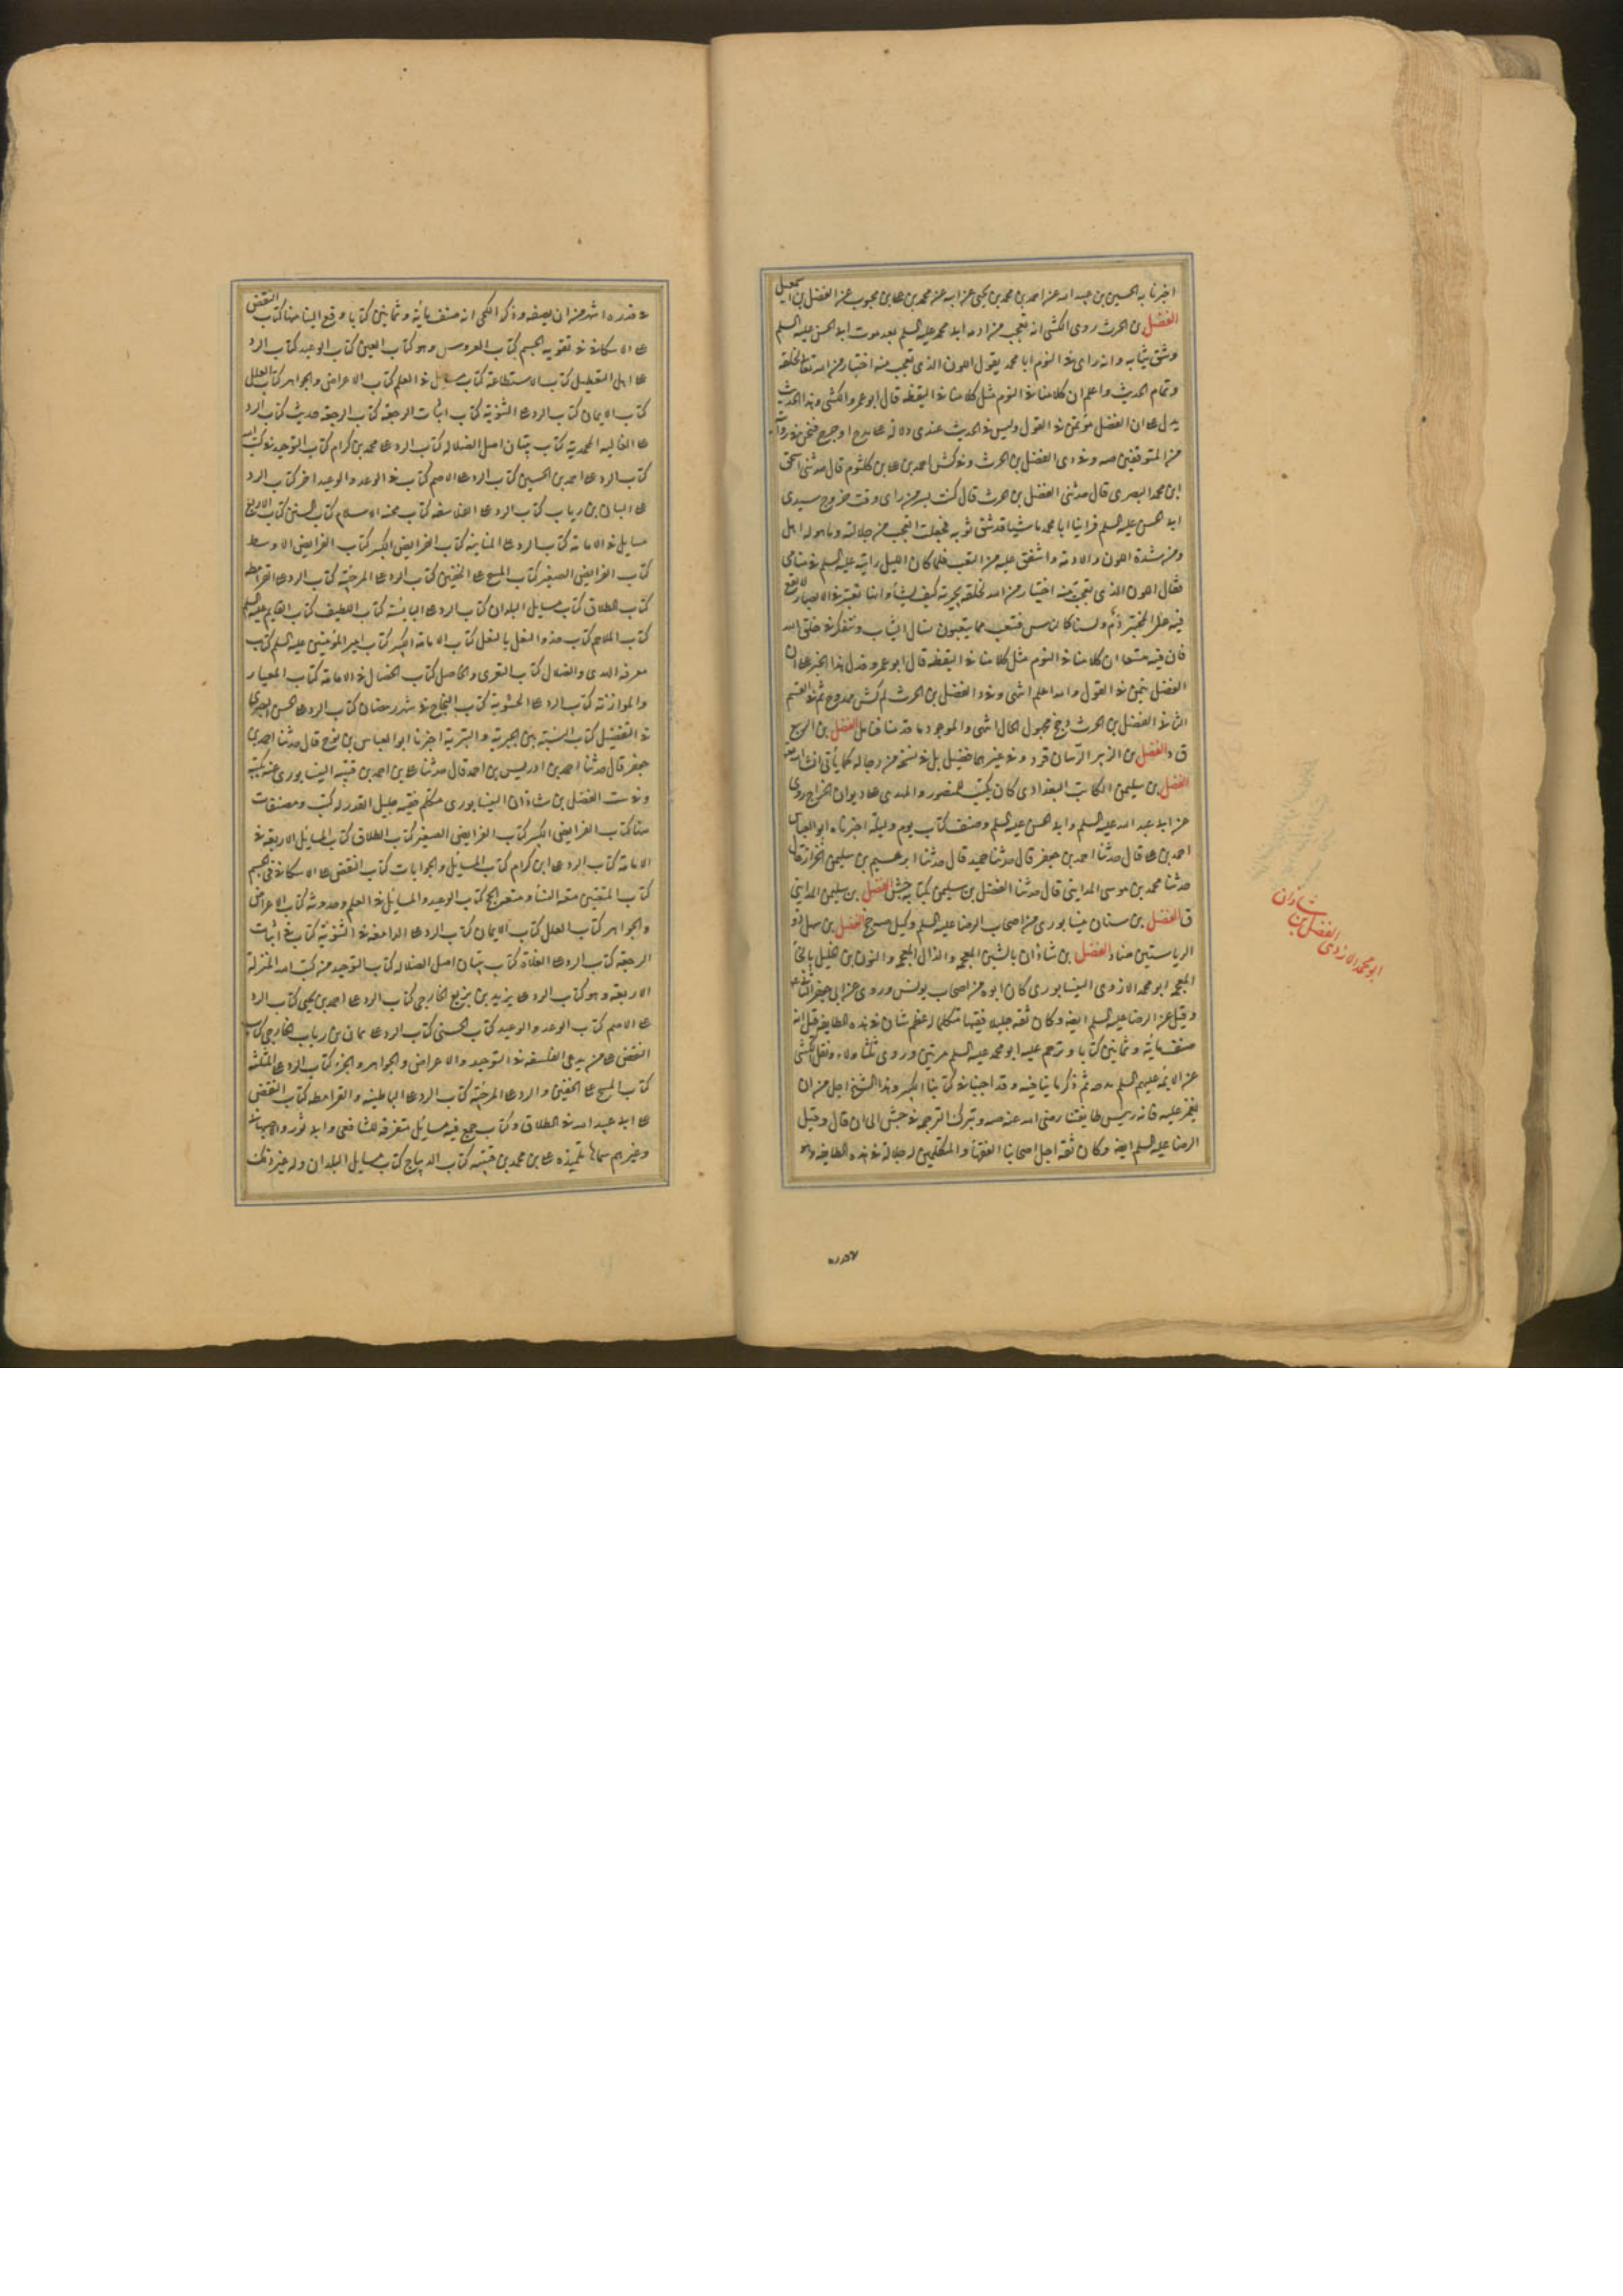 اخبرنا به الحسين بن عبد الله عن احمد بن محمد بن يحيى عن ابيه عن محمد بن على بن محبوب عن الفضل بن اسمعيل
الفضل بن الحرث روى الكشى انه تعجب من ادمه ابى محمد عليه السلم بعد موت ابى الحسن عليه السلم
وشق ثيابه وانه راى فى النوم ابا محمد يقول اللون الذى تعجب منه اختيار من الله تعا لخلقه
وتمام الحديث واعلم ان كلامنا فى النوم مثل كلامنا فى اليقظه قال ابو عمرو الكشى وهذا الحديث
يدل على ان الفضل مؤتمن فى القول وليس فى الحديث عندى دلالة على مدح او جرح فنحن فى روايته
من المتوقفين صه وفى د ى الفضل بن الحرث وفى كش احمد بن على بن كلثوم قال حدثنى اسحق
ابن محمد البصرى قال حدثنى الفضل بن الحرث قال كنت بسر من راى وقت خروج سيدى
ابى الحسن عليه السلم فراينا ابا محمد ماشيا قد شق ثوبه فجعلت اتعجب من جلالته وما هو له اهل
ومن شدة اللون والادمة واشفق عليه من التعب فلما كان الليل رايته عليه السلم فى منامى
فقال اللون الذى تعجبت منه اختيار من الله لخلقه يجريه كيف يشأ وانها تعبير فى الابصار لا يقع
فيه على المختبر ذم ولسنا كالناس فنتعب مما يتعبون نسال الثبات ونتفكر فى خلق الله
فان فيه متسعا ان كلامنا فى النوم مثل كلامنا فى اليقظه قال ابو عمرو فدل هذا الخبر على ان
الفضل يؤتمن فى القول والله اعلم انتهى وفى د الفضل بن الحرث لم كش ممدوح ثم فى القسم
الثانى الفضل بن الحرث رح مجهول الحال انتهى والموجود ما قدمنا فتامل الفضل بن الربيع
ق د الفضل بن الزبير الرسان قر د وفى غيرهما فضيل بل فى نسخه من رجاله كما يأتى انشاء الله تعه
الفضل بن سليمن الكاتب البغدادى كان يكتب للمنصور والمهدى على ديوان الخراج روى
عن ابى عبد الله عليه السلم وابى الحسن عليه السلم وصنف كتاب يوم وليلة اخبرناه ابو العباس
احمد بن على قال حدثنا احمد بن جعفر قال حدثنا حميد قال حدثنا ابرهيم بن سليمن الخزاز قال
حدثنا محمد بن موسى المداينى قال حدثنا الفضل بن سليمن بكتابه جش الفضل بن سليمن المداينى
ق الفضل بن سنان نيسابورى من اصحاب الرضا عليه السلم وكيل صه ج الفضل بن سهل ذو
الرياستين ضا د الفضل بن شاذان بالشين المعجمه والذال المعجمه والنون بن الخليل بالخاء
المعجمه ابو محمد الازدى النيسابورى كان ابوه من اصحاب يونس وروى عن ابى جعفر الثانى
وقيل عن الرضا عليه السلم ايضا وكان ثقه جليلا فقيها متكلما له عظم شان فى هذه الطايفه قيل انه
صنف مائة وثمانين كتابا وترحم عليه ابو محمد عليه السلم مرتين وروى ثلثا ولاء ونقل الكشى
عن الائمه عليهم السلم مدحه ثم ذكر ما ينافيه وقد اجبنا فى كتابنا الكبير وهذا الشيخ اجل من ان
يغمز عليه فانه رييس طايفتنا رضى الله عنه صه وبترك الترجمه فى جش الى ان قال وقيل
الرضا عليه السلم ايضا وكان ثقه اجل اصحابنا الفقهأ والمتكلمين له جلالة فى هذه الطايفه وهو
فى قدره
ابو محمد الازدى الفضل بن شاذان
فى قدره اشهر من ان يصفه وذكر الكنجى انه صنف مائة وثمانين كتابا وقع الينا منها كتاب النقض
على الاسكافى فى تقويه الجسم كتاب العروس وهو كتاب العين كتاب الوعيد كتاب الرد
على اهل التعطيل كتاب الاستطاعة كتاب مسايل فى العلم كتاب الاعراض والجواهر كتاب العلل
كتاب الايمان كتاب الرد على الثنويه كتاب اثبات الرجعه كتاب الرجعه حديث كتاب الرد
على الغاليه المحمديه كتاب تبيان اصل الضلاله كتاب الرد على محمد بن كرام كتاب التوحيد فى كتب الله
كتاب الرد على احمد بن الحسين كتاب الرد على الاصم كتاب فى الوعد والوعيد اخر كتاب الرد
على البيان بن رباب كتاب الرد على الفلاسفه كتاب محنه الاسلام كتاب السنن كتاب الاربع
مسايل فى الامامة كتاب الرد على المنانيه كتاب الفرايض الكبير كتاب الفرايض الاوسط
كتاب الفرايض الصغير كتاب المسح على الخفين كتاب الرد على المرجئه كتاب الرد على القرامطه
كتاب الطلاق كتاب مسايل البلدان كتاب الرد على البائسه كتاب اللطيف كتاب القايم عليه السلم
كتاب الملاحم كتاب حذو النعل بالنعل كتاب الامامة الكبير كتاب امير المؤمنين عليه السلم كتاب
معرفه الهدى والضلال كتاب التعرى والحاصل كتاب الخصال فى الامامة كتاب المعيار
والموازنة كتاب الرد على الحشوية كتاب النجاح فى شهر رمضان كتاب الرد على الحسن البصرى
فى التفضيل كتاب النسبة بين الجبرية والبترية اخبرنا ابو العباس بن نوح قال حدثنا احمد بن
جعفر قال حدثنا احمد بن ادريس بن احمد قال حدثنا على بن احمد بن قتيبه النيسابورى عنه بكتبه
وفى ست الفضل بن شاذان النيسابورى متكلم فقيه جليل القدر له كتب ومصنفات
منها كتاب الفرايض الكبير كتاب الفرايض الصغير كتاب الطلاق كتاب المسايل الاربعه فى
الامامة كتاب الرد على ابن كرام كتاب المسايل والجوابات كتاب النقض على الاسكافى فى الجسم
كتاب المتعتين متعه النسأ ومتعه الحج كتاب الوعيد والمسايل فى العلم وحدوثه كتاب الاعراض
والجواهر كتاب العلل كتاب الايمان كتاب الرد على الدامغه الثنويه كتاب فى اثبات
الرجعه كتاب الرد على الغلاة كتاب تبيان اصل الضلاله كتاب التوحيد من كتب الله المنزلة
الاربعه وهو كتاب الرد على يزيد بن بزيع الخارجى كتاب الرد على احمد بن يحيى كتاب الرد
على الاصم كتاب الوعد والوعيد كتاب الحسنى كتاب الرد على يمان بن رباب الخارجى كتاب
النقض على من يدعى الفلسفه فى التوحيد والاعراض والجواهر والجزء كتاب الرد على المثلثه
كتاب المسح على الخفين والرد على المرجئه كتاب الرد على الباطنيه والقرامطه كتاب النقض
على ابى عبيد الله فى الطلاق وكتاب جمع فيه مسائل متفرقه للشافعى وابى ثور والاصبهانى
وغيرهم سماها تلميذه على بن محمد بن قتيبه كتاب الديباج كتاب مسايل البلدان وله غير ذلك